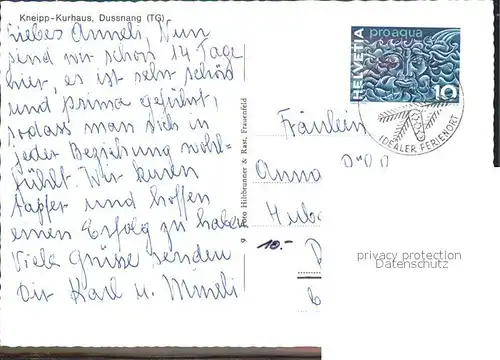 Kneipp-Kurhaus, Dussnang (TG)
Liebes Anneli, Nun
sind wir schon 14 Tage
hier, es ist sehr schön
und prima geführt,
sodass man sich in
jeder Beziehung wohl-
fühlt. Wir kuren
tapfer und hoffen
einen Erfolg zu haben
Viele Grüsse senden
Dir Karl u. Mineli
9 Foto Hiltbrunner & Rast, Frauenfeld
HELVETIA
pro aqua
10
IDEALER FERIENORT
Fräulein
Anna
10.-
privacy protection
Datenschutz